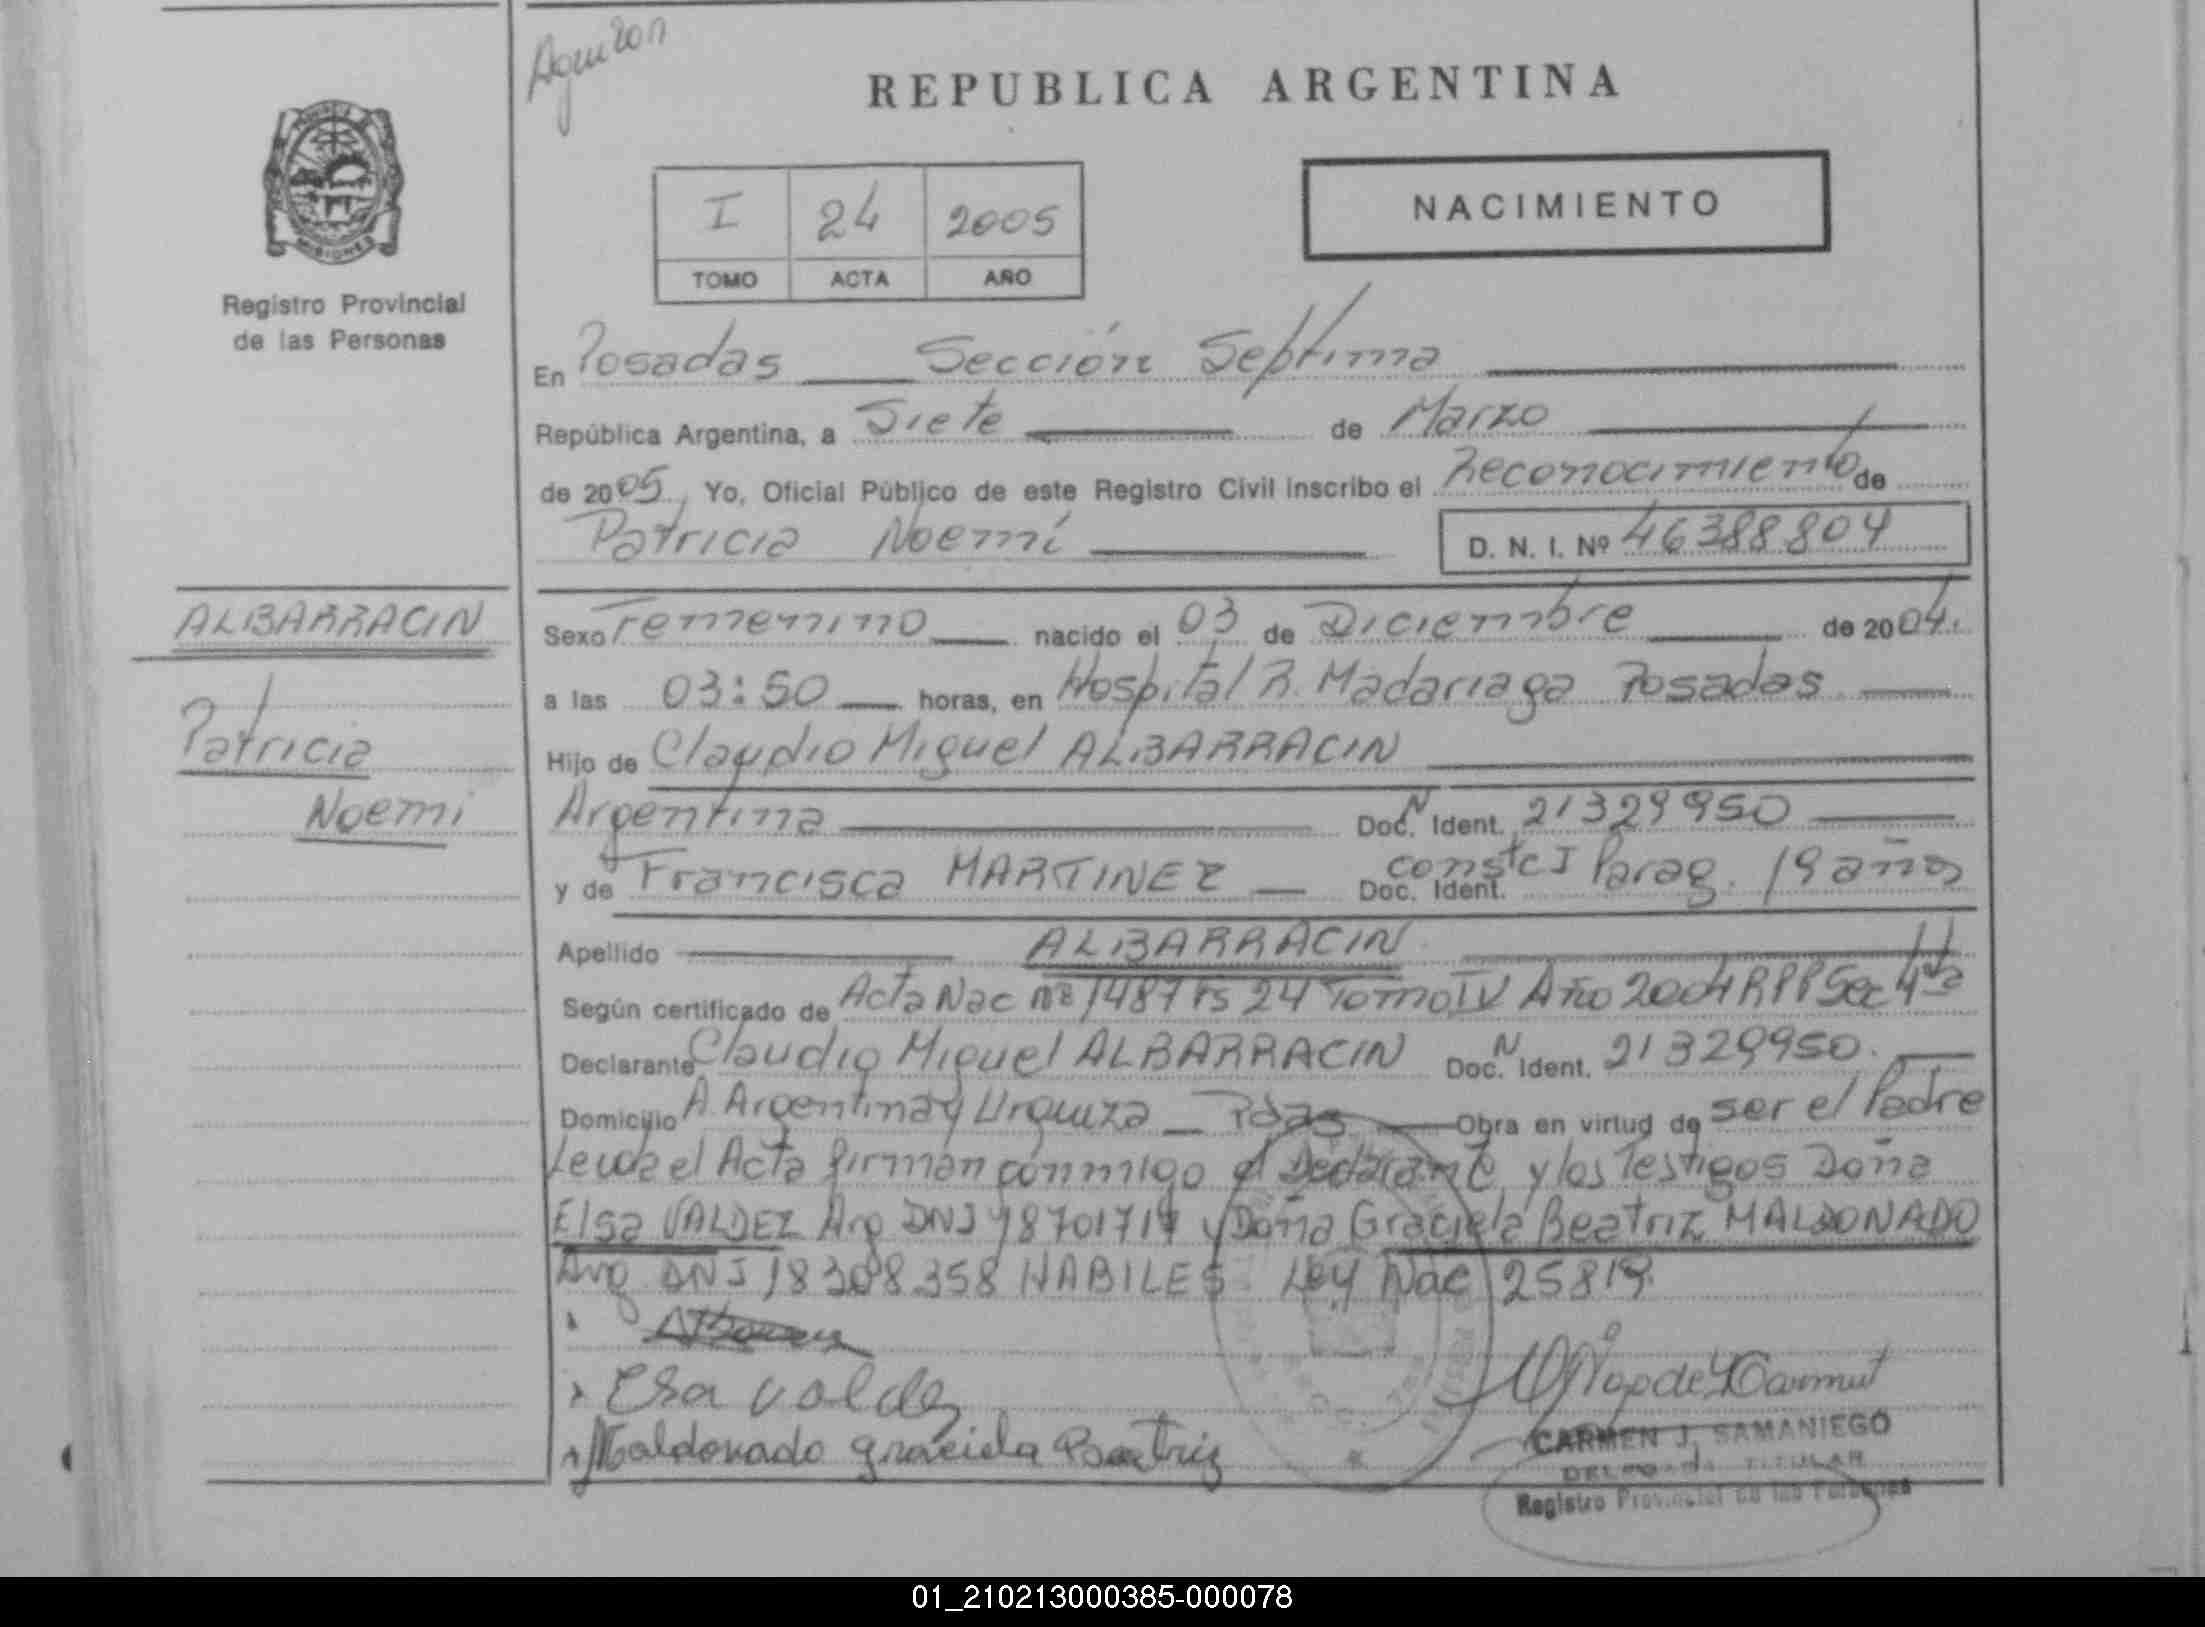 Aguilar
REPUBLICA ARGENTINA
MISIONES
Registro Provincial
de las Personas
I 24 2005
TOMO ACTA AÑO
NACIMIENTO
En Posadas Sección Septima
República Argentina, a Siete de Marzo
de 2005. Yo, Oficial Público de este Registro Civil inscribo el Reconocimiento de
Patricia Noemí D. N. I. Nº 46388804
ALBARRACIN
Patricia
Noemi
Sexo Femenino nacido el 03 de Diciembre de 2004.
a las 03:50 horas, en Hospital R. Madariaga Posadas
Hijo de Claudio Miguel ALBARRACIN
Argentina Doc. N Ident. 21329950
y de Francisca MARTINEZ Doc. Ident. const CI Parag. 19 años
Apellido ALBARRACIN
Según certificado de Acta Nac nº 1487 Fs 24 Tomo IV Año 2004 RPP Sec 4ta
Declarante Claudio Miguel ALBARRACIN Doc. N Ident. 21329950.
Domicilio A. Argentina y Urquiza Pdas Obra en virtud de ser el Padre
Leida el Acta firman conmigo el Declarante y los Testigos Doña
Elsa VALDEZ Arg DNI 18701717 y Doña Graciela Beatriz MALDONADO
Arg DNI 18308.358 HABILES. Ley Nac 25819.
Elsa Valdez
Maldonado Graciela Beatriz
CARMEN J. SAMANIEGO
DELEGADA TITULAR
Registro Provincial de las Personas
01_210213000385-000078